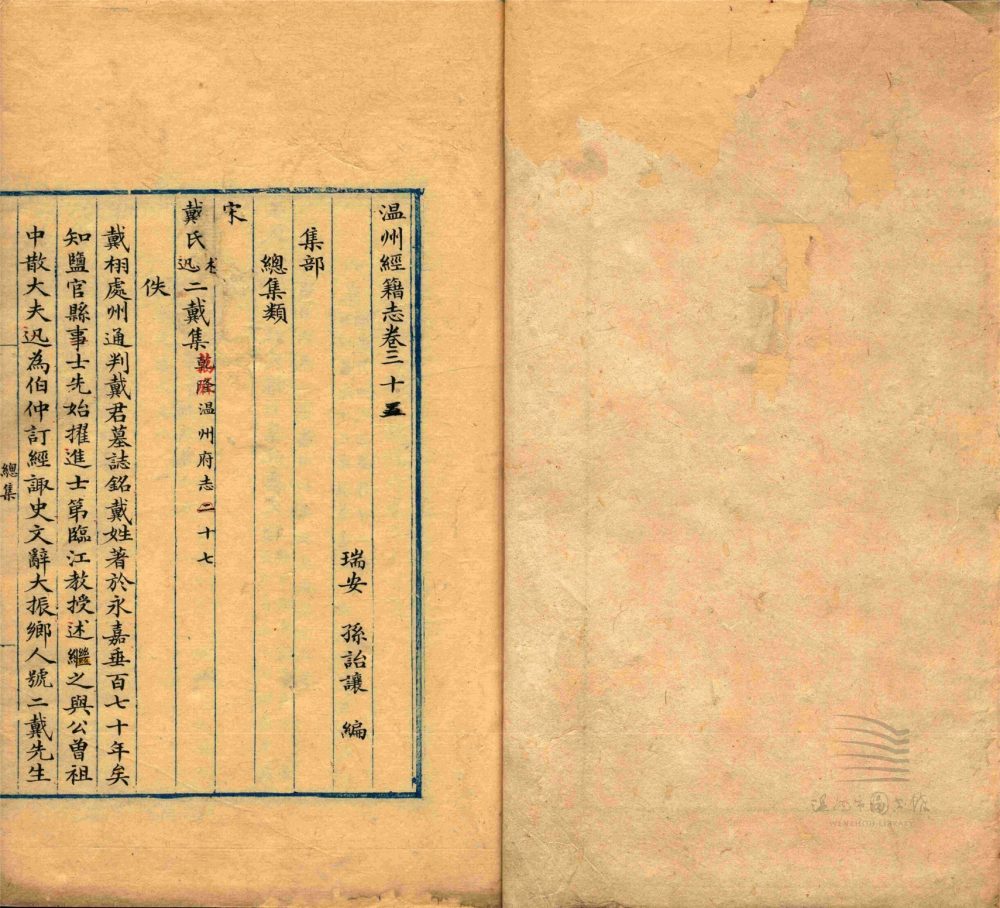 温州經籍志卷三十五
瑞安 孫詒讓 編
集部
總集類
宋
戴氏述迅二戴集乾隆温州府志二十七
佚
戴栩處州通判戴君墓誌銘戴姓著於永嘉垂百七十年矣
知鹽官縣事士先始擢進士第臨江教授述繼之與公曾祖
中散大夫迅為伯仲訂經諏史文辭大振鄉人號二戴先生
總集
温州市圖书館
WENZHOU LIBRARY